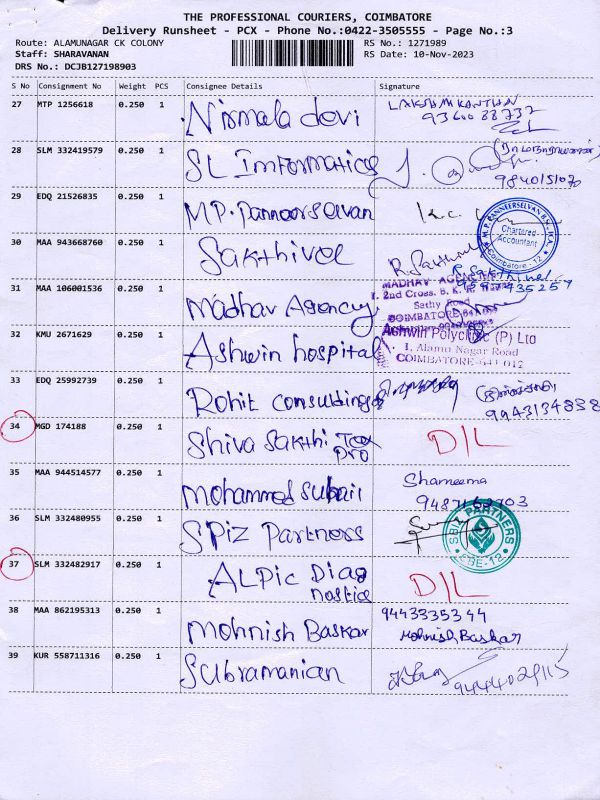 THE PROFESSIONAL COURIERS, COIMBATORE
Delivery Runsheet - PCX - Phone No.:0422-3505555 - Page No.:3
Route: ALAMUNAGAR CK COLONY RS No.: 1271989
Staff: SHARAVANAN RS Date: 10-Nov-2023
DRS No.: DCJB127198903
S No Consignment No Weight PCS Consignee Details Signature
27 MTP 1256618 0.250 1 Nirmala devi
28 SLM 332419579 0.250 1 SL Imformatics
29 EDQ 21526835 0.250 1 M.P. Panneerselvan
M.P. PANNEERSELVAN
Chartered Accountant
Coimbatore - 12
30 MAA 943668760 0.250 1 Sakthivel
31 MAA 106001536 0.250 1 Madhav Agency
MADHAV AGENCIES
2nd Cross
Sathy Road
COIMBATORE
32 KMU 2671629 0.250 1 Ashwin hospital
Ashwin Polyclinic (P) Ltd
1, Alamu Nagar Road
COIMBATORE-641 012
33 EDQ 25992739 0.250 1 Rohit consulding
9943134838
34 MGD 174188 0.250 1 Shiva Sakthi Tex D/L
pro
35 MAA 944514577 0.250 1 Mohammed Subair Shameema
36 SLM 332480955 0.250 1 SPiz Partners
PARTNERS
CBE-12
37 SLM 332482917 0.250 1 ALPic Diag D/L
nostics
38 MAA 862195313 0.250 1 Mohnish Baskar 9443335344
Mohnish Baskar
39 KUR 558711316 0.250 1 Subramanian